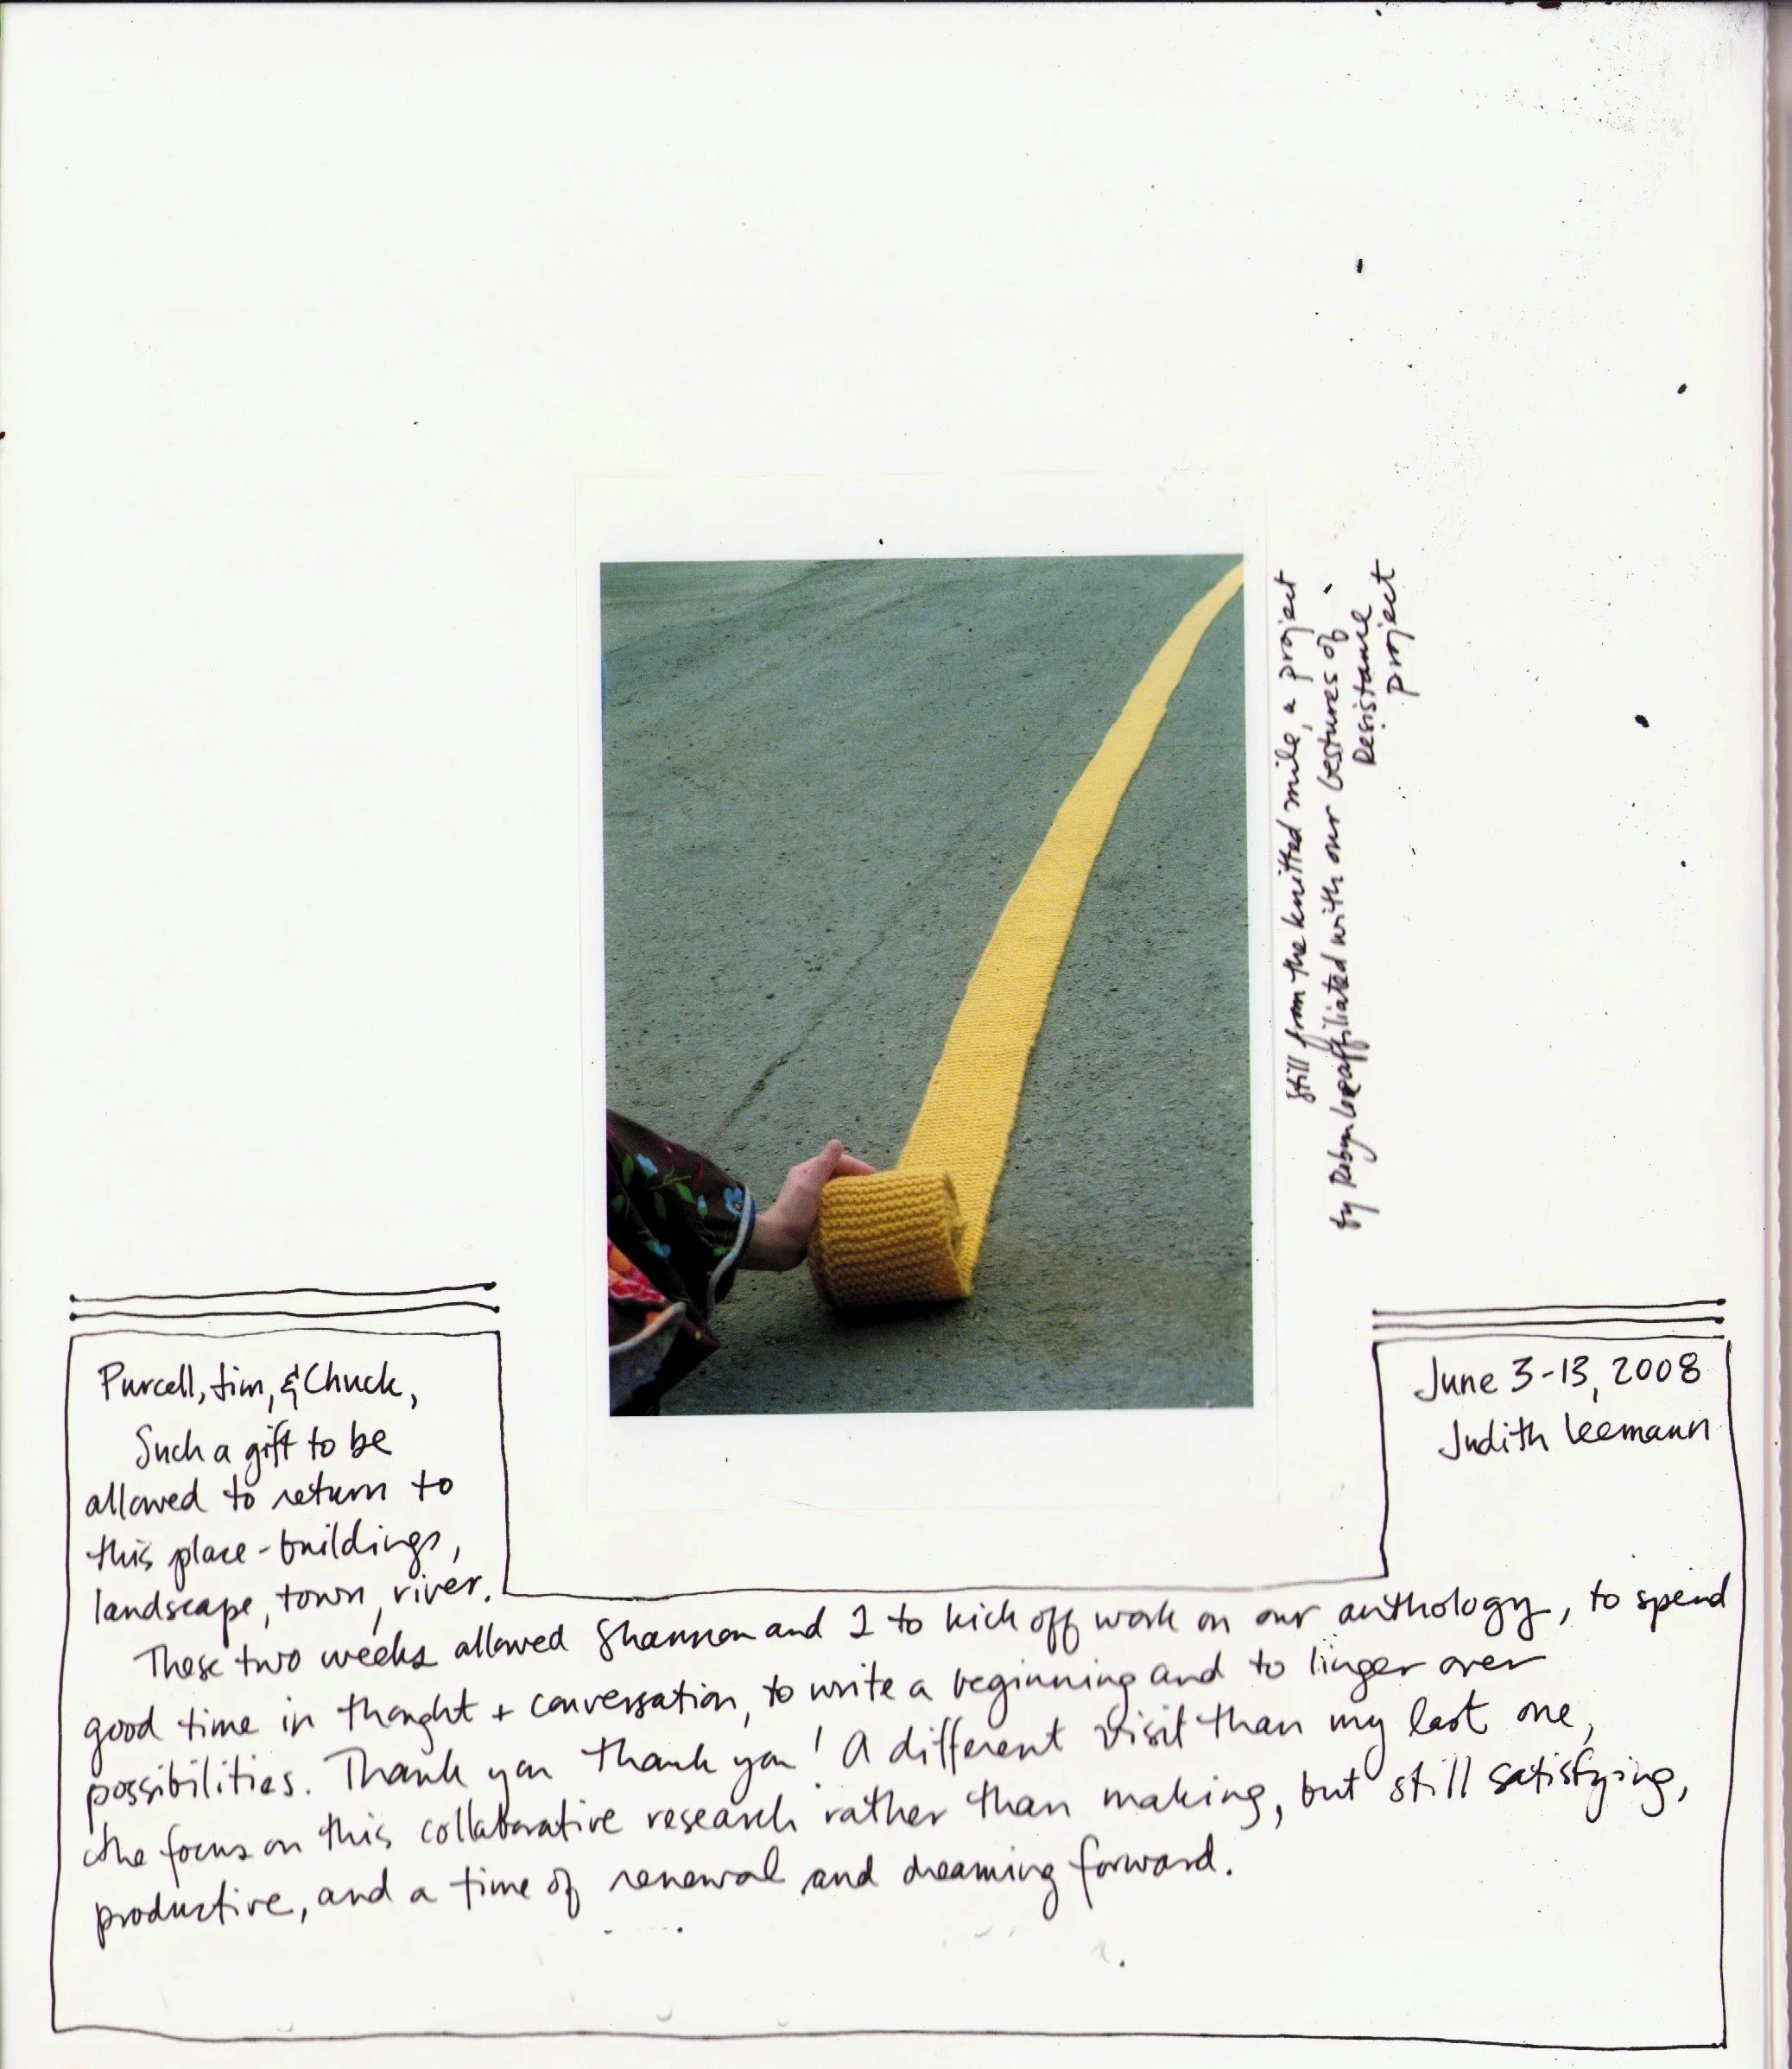 still from the knitted mile, a project
by Robyn Love affiliated with our Gestures of
Resistance
project
Purcell, Jim, & Chuck,
Such a gift to be
allowed to return to
this place - buildings,
landscape, town, river.
June 3-13, 2008
Judith Leemann
These two weeks allowed Shannon and I to kick off work on our anthology, to spend
good time in thought + conversation, to write a beginning and to linger over
possibilities. Thank you thank you! A different visit than my last one,
the focus on this collaborative research rather than making, but still satisfying,
productive, and a time of renewal and dreaming forward.